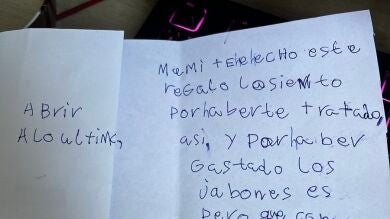 ABrir
ALOultimo,
MaMi + EHeHeCHO este
reGaLo Losiento
Porhaberte tratado,
asi, Y Porhaber
GastaDo Los
jabones es
Pero que can